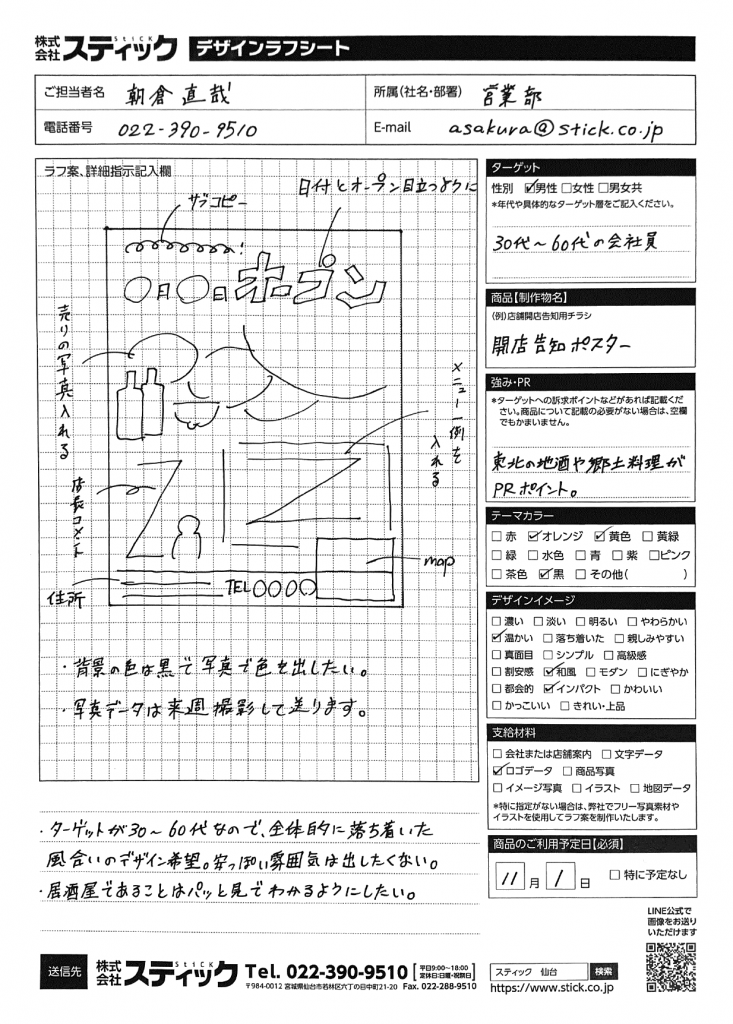 株式会社 スティック STICK デザインラフシート
ご担当者名 朝倉 直哉
所属(社名・部署) 営業部
電話番号 022-390-9510
E-mail asakura@stick.co.jp
ラフ案、詳細指示記入欄
日付とオープン目立つように
サブコピー
〇月〇日オープン
売りの写真入れる
メニュー一例を
入れる
店長コメント
map
住所
TEL〇〇〇〇
・背景の色は黒で写真で色を出したい。
・写真データは来週撮影して送ります。
・ターゲットが30〜60代なので、全体的に落ち着いた
風合いのデザイン希望。安っぽい雰囲気は出したくない。
・居酒屋であることはパッと見でわかるようにしたい。
ターゲット
性別 ☑男性 □女性 □男女共
*年代や具体的なターゲット層をご記入ください。
30代〜60代の会社員
商品【制作物名】
(例)店舗開店告知用チラシ
開店告知ポスター
強み・PR
*ターゲットへの訴求ポイントなどがあれば記載くださ
い。商品について記載の必要がない場合は、空欄
でもかまいません。
東北の地酒や郷土料理が
PRポイント。
テーマカラー
□赤 ☑オレンジ ☑黄色 □黄緑
□緑 □水色 □青 □紫 □ピンク
□茶色 ☑黒 □その他( )
デザインイメージ
□濃い □淡い □明るい □やわらかい
☑温かい □落ち着いた □親しみやすい
□真面目 □シンプル □高級感
□割安感 ☑和風 □モダン □にぎやか
□都会的 ☑インパクト □かわいい
□かっこいい □きれい・上品
支給材料
□会社または店舗案内 □文字データ
☑ロゴデータ □商品写真
□イメージ写真 □イラスト □地図データ
*特に指定がない場合は、弊社でフリー写真素材や
イラストを使用してラフ案を制作いたします。
商品のご利用予定日【必須】
11月1日 □特に予定なし
LINE公式で
画像をお送り
いただけます
送信先 株式会社 スティック STICK Tel. 022-390-9510 [平日9:00〜18:00]
[定休日:日曜・祝祭日]
〒984-0012 宮城県仙台市若林区六丁の目中町21-20 Fax. 022-288-9510
スティック 仙台 検索
https://www.stick.co.jp